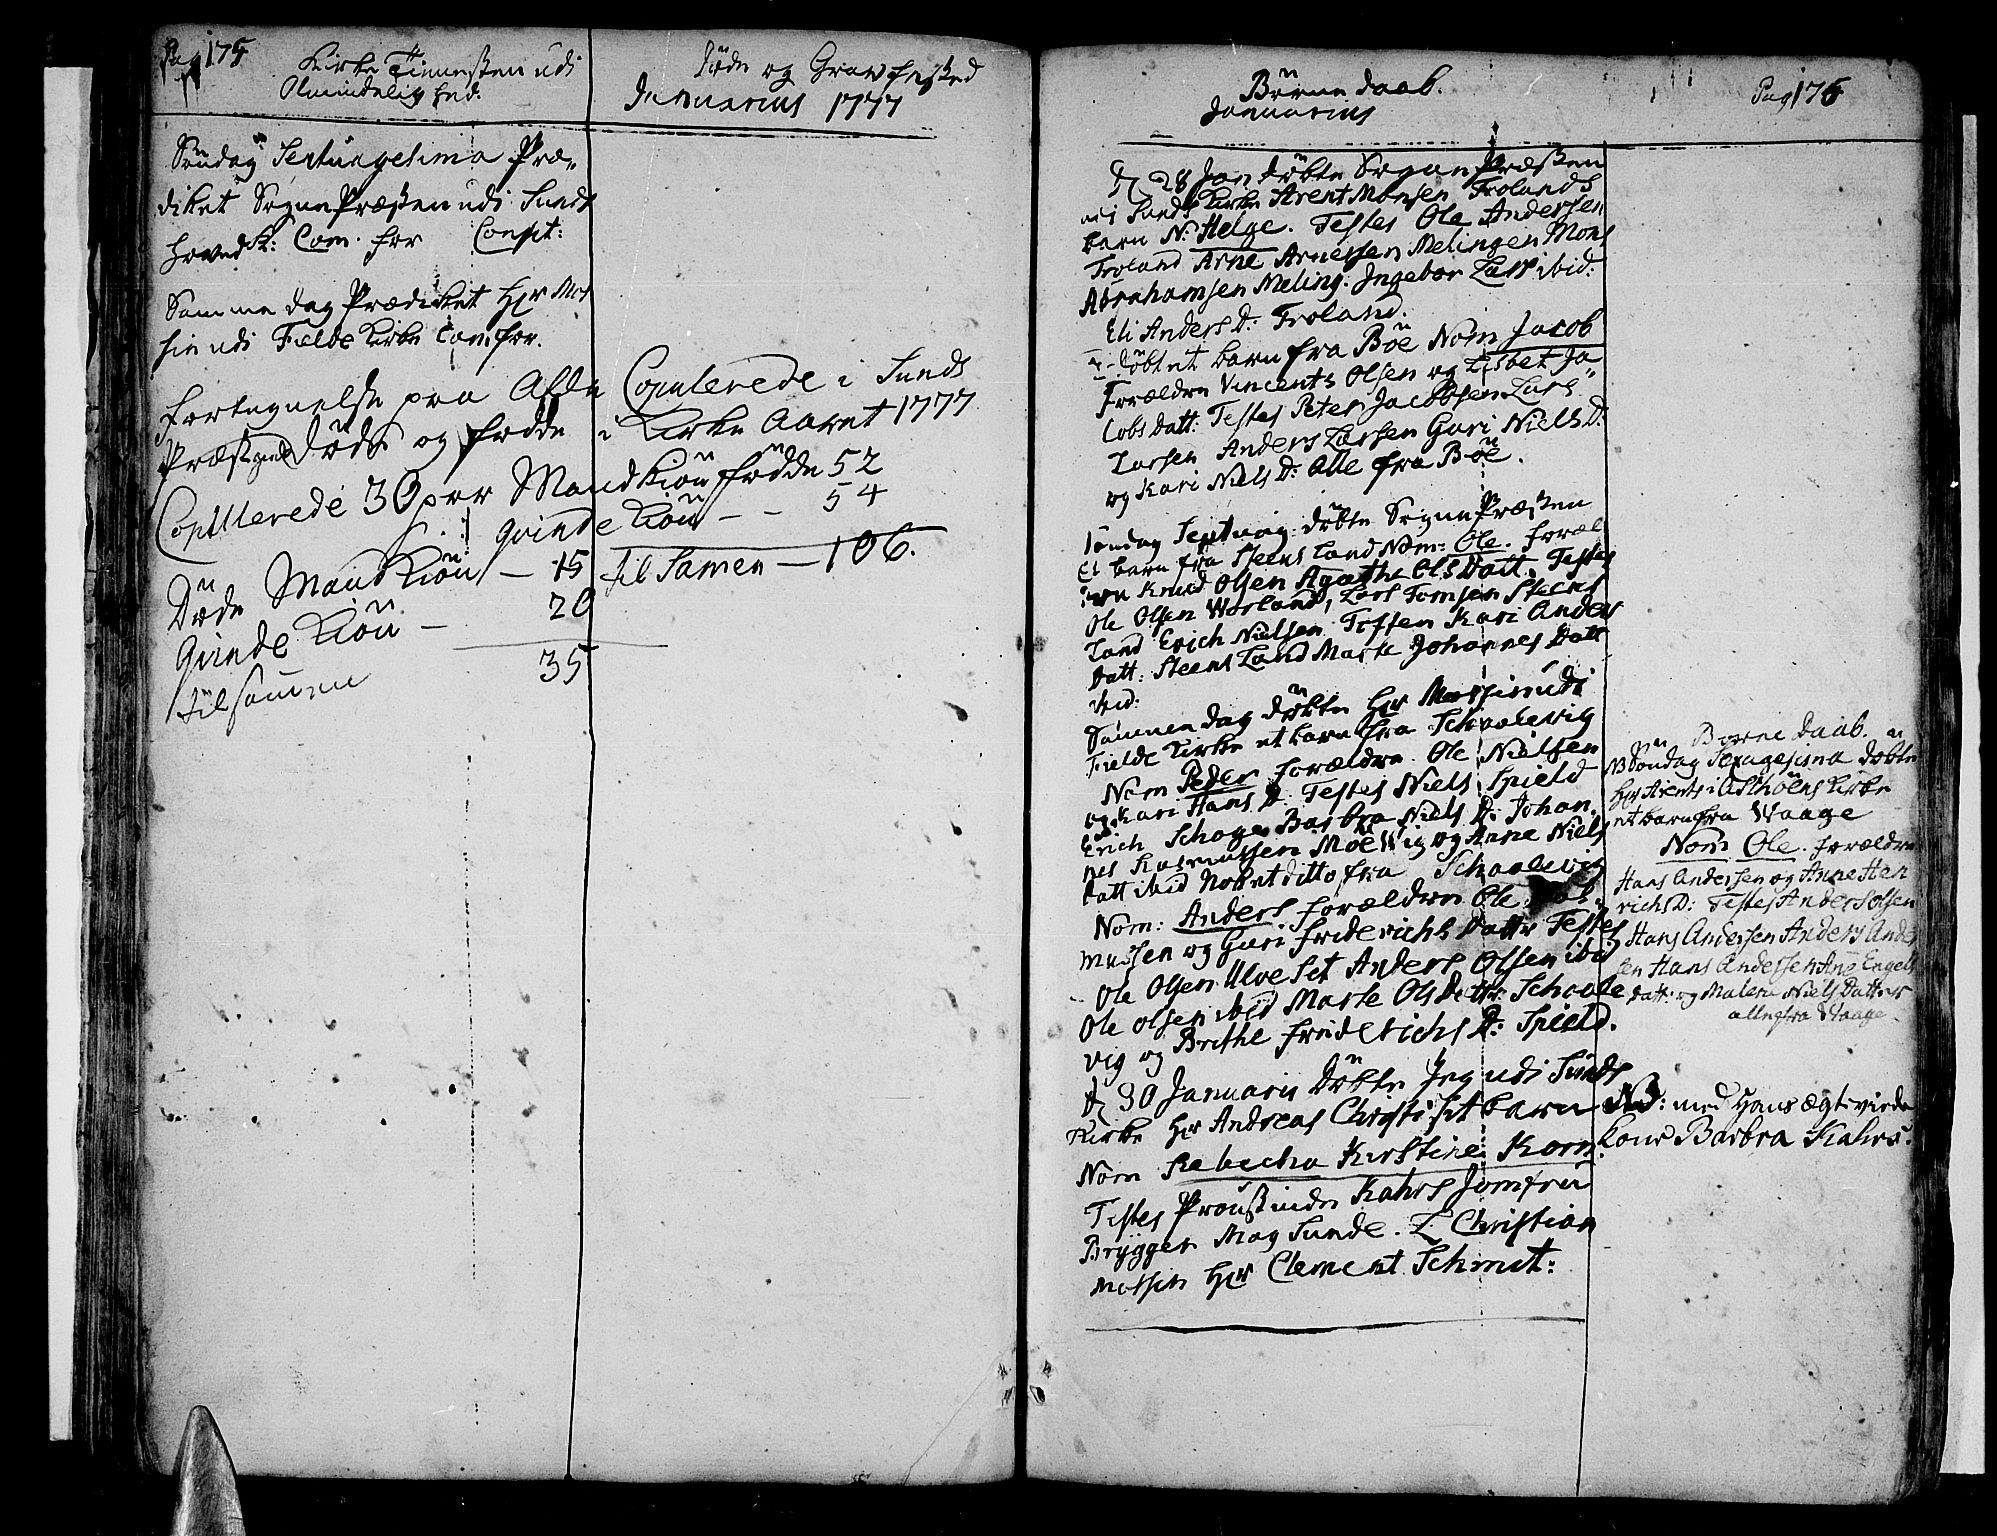 Pag 175
Kirke Tienesten udi
Almindelighed.
Døde og Gravfested
Januarius 1777
Søndag Septuagesima Præ-
diket SognePræsten udi Sunds
hovedK: Com. for Conft:
Samme dag Prædiket Hr Mos
sin udi Fielde Kirke Com. for.
Fortegnelse paa Alle Copulerede i Sunds
Præstegield døde og fødde i Kirke Aaret 1777
Copulerede 30 par Mand Kiøn fødde 52
qvinde Kiøn - - 54
Døde Mand Kiøn - 15 til Samen - 106.
Qvinde Kiøn - 20
tilsamen 35
Børne daab.
Januarius
Pag 176
D. 28 Jan døbte SognePræsten
udi Sunds Kirke Arent Monsen Frolands
barn N: Helge. Testes Ole Andersen
Froland Arne Arnessen Melingen Mons
Abrahamsen Meling. Ingebor Lars ibid:
Eli Anders D: Froland.
døbt et barn fra Böe Nom Jacob
Forældre Vincents Olsen og Lisbet Ja-
cobs Datt: Testes Peter Jacobsen Lars
Larsen Anders Larsen Guri Niels D:
og Kari Niels D: Alle fra Böe.
Söndag Septuag: döbte SognePræsten
Et barn fra Steensland Nom: Ole. foræl
dre Knud Olsen Agathe Ols Datt. Testes
Ole Olsen Worland, Lars Tomsen Steens
land Erich Nielsen Toffen Kari Anders
Datt: Steensland Marte Johannes Datt
ibid:
Sammen dag döbte Hr Mossin udi
Fielde Kirke et barn fra Schaalevig
Nom Peder forældre Ole Nielsen
og Kari Hans D: Testes Niels Spield
Erich Schoge Barbra Niels D: Johan
nes Rasmussen Möe Wig og Anne Niels
Datt ibid Nok et ditto fra Schaalevig
Nom: Anders forældre Ole Ras-
mussen og Guri friderichs Datter Testes
Ole Olsen Ulveset Anders Olsen ibid
Ole olsen ibid Marte Ols Datter Schaale
vig og Brithe friderichs D: Spield.
D. 30 Januarii döbte Jeg udi Sunds
Kirke Hr Andreas Christi: sit barn
Nom Rebecka Kirstine Korn.
Testes Proustinde Kahrs Jomfru
Brygger Mag Sunde. L Christian
Mossin Hr Clement Schmit:
Börne Daab.
NB Søndag Sexagesima döbte
Hr Arents i Asthöens Kirke
et barn fra Waage
Nom Ole. forældre
Hans Andersen og Anne Hen
richs D: Testes Anders Olsen
Hans Andersen Anders Ander
sen Hans Andersen Ane Engels
Datt: og Malene Niels Datter
alle fra Waage
NB: med Hans ægtevirde
Kone Barbra Kahrs.